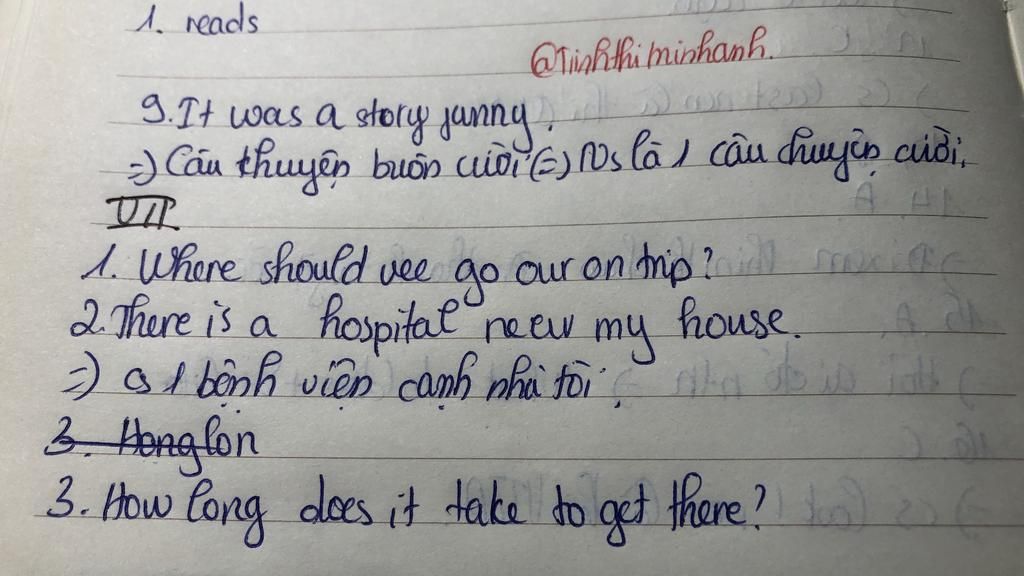 1. reads
@Tinhthiminhanh.
9. It was a story junny.
=) Câu thuyện buồn cười (=) Ns là 1 câu chuyện cười.
VII
1. Where should wee go our on trip?
2. There is a hospital neew my house.
=) cs 1 bệnh viện cạnh nhà tôi.
3. Honglon
3. How long does it take to get there?